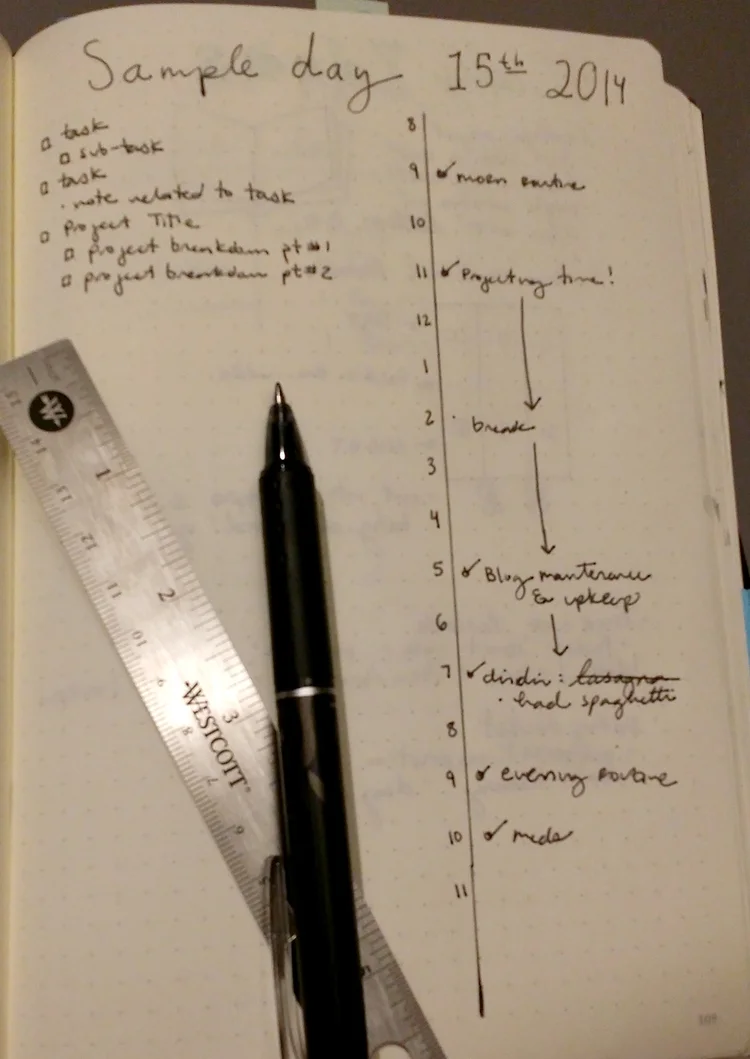 Sample day 15th 2014
□ task
□ sub-task
□ task
· note related to task
□ Project Title
□ project breakdown pt #1
□ project breakdown pt #2
8
9 ✓ morn routine
10
11 ✓ Projecting time!
12
1
2 · break
3
4
5 ✓ Blog mantenance
& upkeep
6
7 ✓ dindin: lasagna
· had spaghetti
8
9 ✓ evening routine
10 ✓ meds
11
WESTCOTT®
1
2
3
15
14
13
12
11
10
9
8
7
6
5